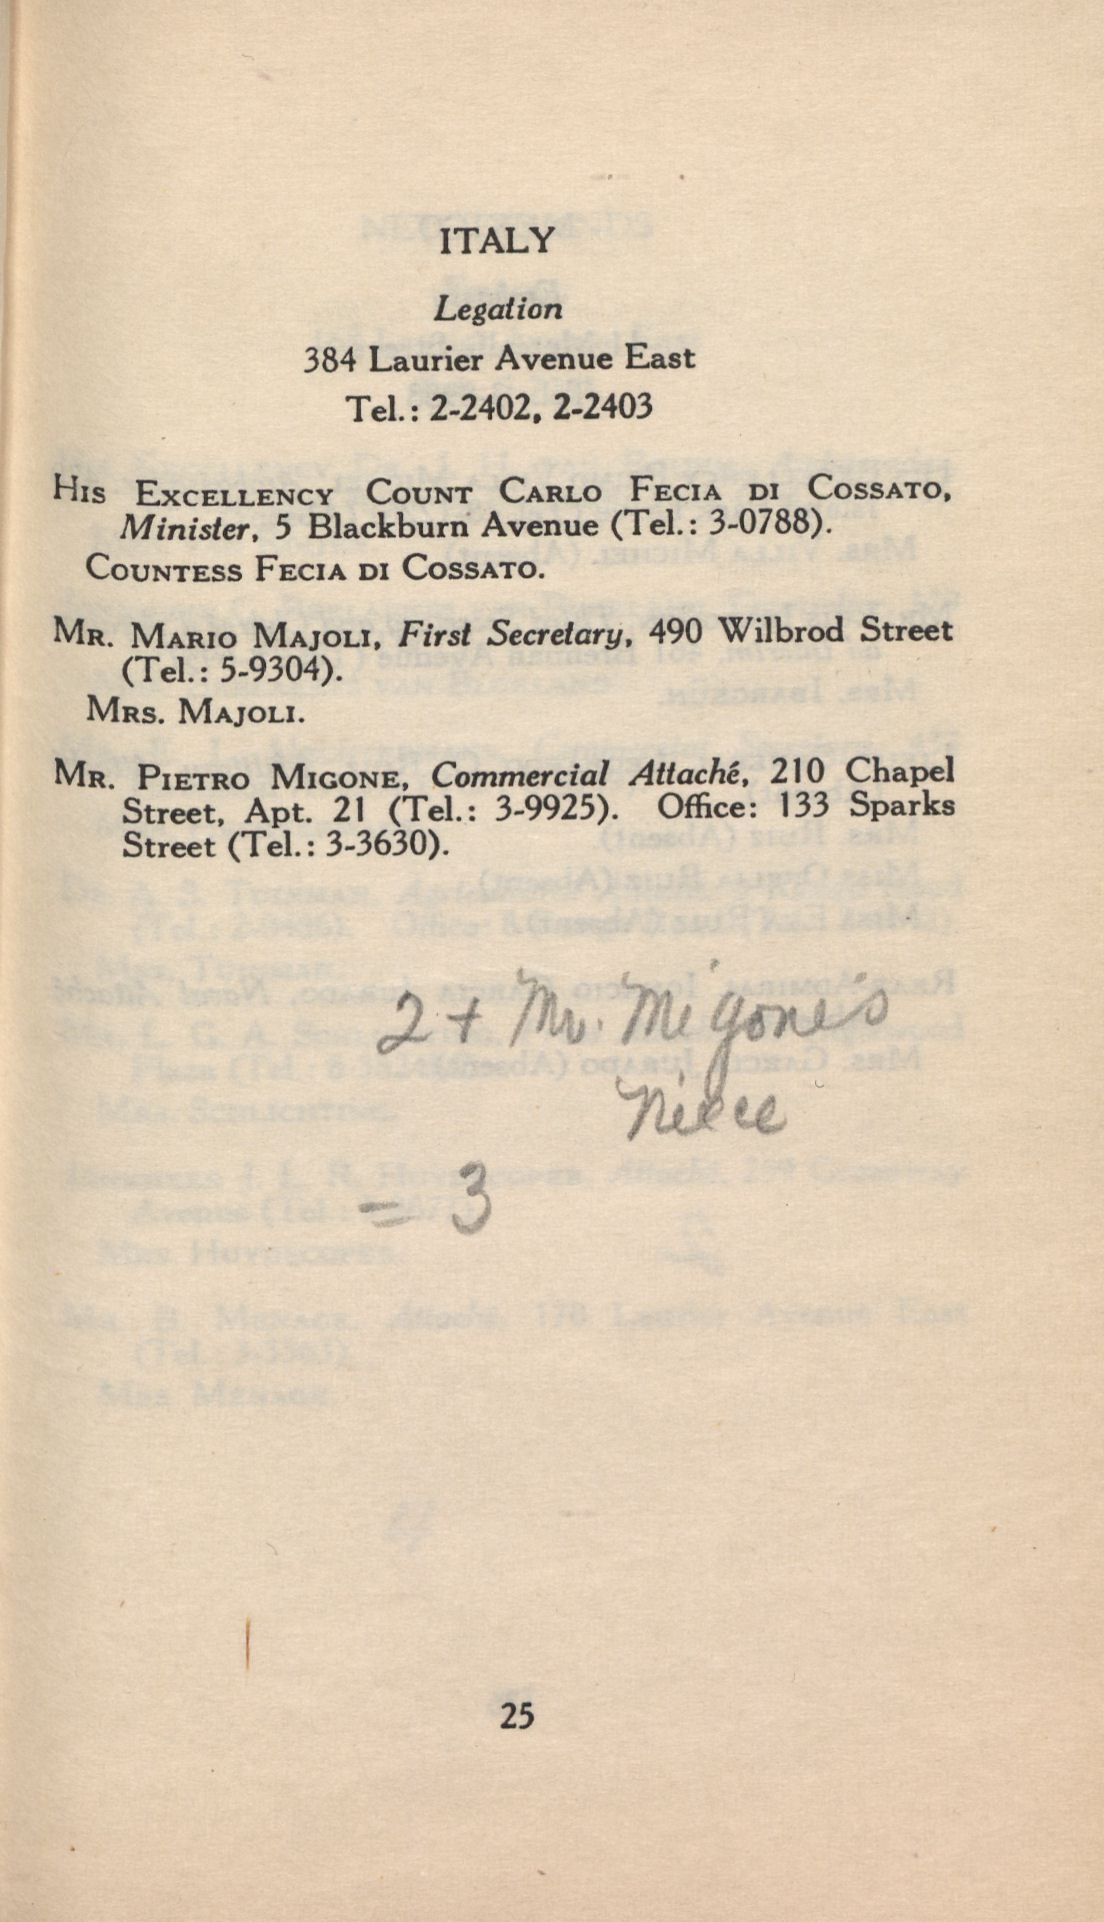 ITALY
Legation
384 Laurier Avenue East
Tel.: 2-2402, 2-2403
HIS EXCELLENCY COUNT CARLO FECIA DI COSSATO,
Minister, 5 Blackburn Avenue (Tel.: 3-0788).
COUNTESS FECIA DI COSSATO.
MR. MARIO MAJOLI, First Secretary, 490 Wilbrod Street
(Tel.: 5-9304).
MRS. MAJOLI.
MR. PIETRO MIGONE, Commercial Attaché, 210 Chapel
Street, Apt. 21 (Tel.: 3-9925). Office: 133 Sparks
Street (Tel.: 3-3630).
2 + Mr. Migone's
niece
= 3
25